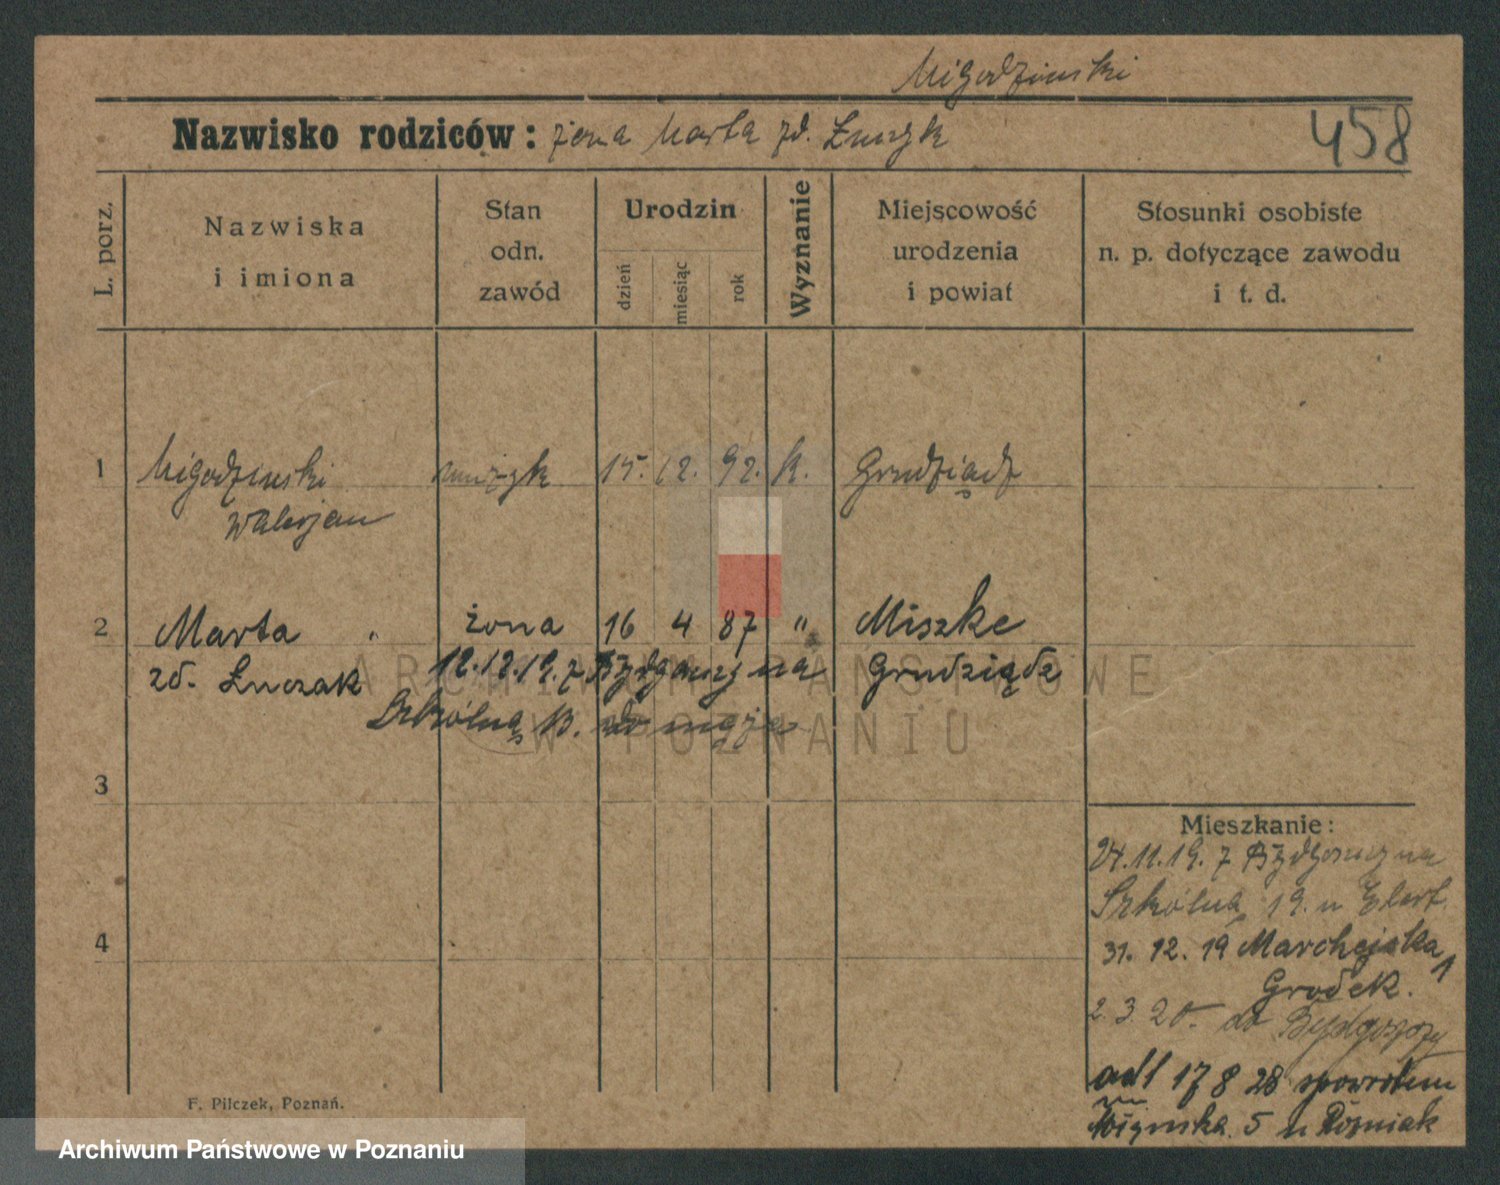 Migodzinski
Nazwisko rodziców: żona Marta zd. Łuczak
458
L. porz.
Nazwiska
i imiona
Stan
odn.
zawód
Urodzin
dzień
miesiąc
rok
Wyznanie
Miejscowość
urodzenia
i powiat
Stosunki osobiste
n. p. dotyczące zawodu
i t. d.
1 Migodzinski muzyk 15. 12. 92. k. Grudziądz
Walerjan
2 Marta " żona 16 4 87 " Miszke
zd. Łuczak 12.12.19. z Bydgoszcz na Grudziądz
Szkólną 13. do męża
3
4
Mieszkanie:
24.11.19. z Bydgoszcz na
Szkólną 19. u
31. 12. 19
Grodek. 1
2.3.20. do Bydgoszczy
17 8 28 spowrotem
5 u Rośniak
F. Pilczek, Poznań.
ARCHIWUM PAŃSTWOWE
W POZNANIU
Archiwum Państwowe w Poznaniu